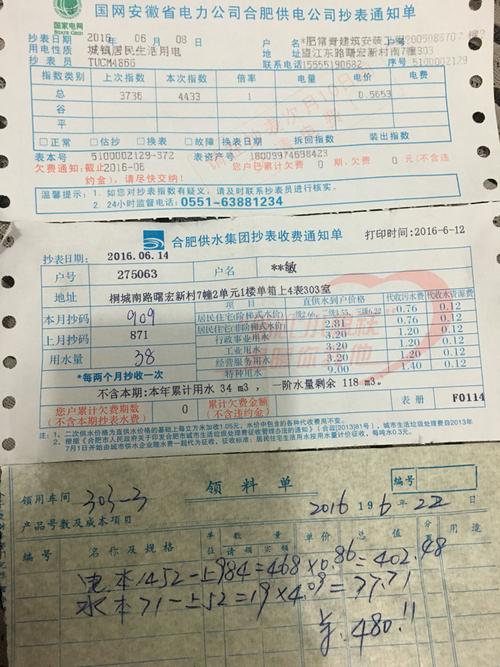 国家电网
国网安徽省电力公司合肥供电公司抄表通知单
抄表日期 2016 06 08
用电性质 城镇居民生活用电
地址 望江东路曙宏新村南7幢303
抄表员 TUCM4866
联系电话
指数类别 上次指数 本次指数 倍率 电量 电价 电费
总 3736 4433 1 0.5653
谷
平
正常 估抄 换表 故障 换表日期 拆回指数 装出指数
表本号 5100002129-372 表资产号 18009974698423
欠费通知:截止2016-06 您户已累计欠费 0 期,欠费 0 元(不含违
约金),请尽快交纳!
温馨提示: 1. 如您对抄表指数有疑义,请及时联系抄表员进行核实。
2. 24小时监督电话: 0551-63881234
合肥供水集团抄表收费通知单
打印时间:2016-6-12
抄表日期: 2016.06.14
户号 275063 户名 **敏
地址 桐城南路曙宏新村7幢2单元1楼单箱上4表303室
本月抄码 909
上月抄码 871
用水量 38
*每两个月抄收一次
项目 直供水到户价格 代收污水费 代收水资源费
居民住宅(阶梯式水价) 0.76 0.12
居民住宅(非阶梯式水价) 2.31 0.76 0.12
行政事业用水 3.20 1.20 0.12
工业用水 3.20 1.20 0.12
经营服务用水 3.20 1.20 0.12
特种用水 9.00 1.40 0.12
不含本期:本年累计用水 34 m3 ,一阶水量剩余 118 m3。
您户累计欠费期数
(不含本期抄表水费) 0 累计欠费金额
(不含违约金) 元 表册 F0114
领料单
编号
领用车间 303-3
2016 19 6 22 日
产品号数及成本项目
编号 名称及规格 单位 数量 请领 实领 单价 总值 用途
电本1452-上984=468×0.86=402.48
水本71-上52=19×4.09=77.71
¥:480.11